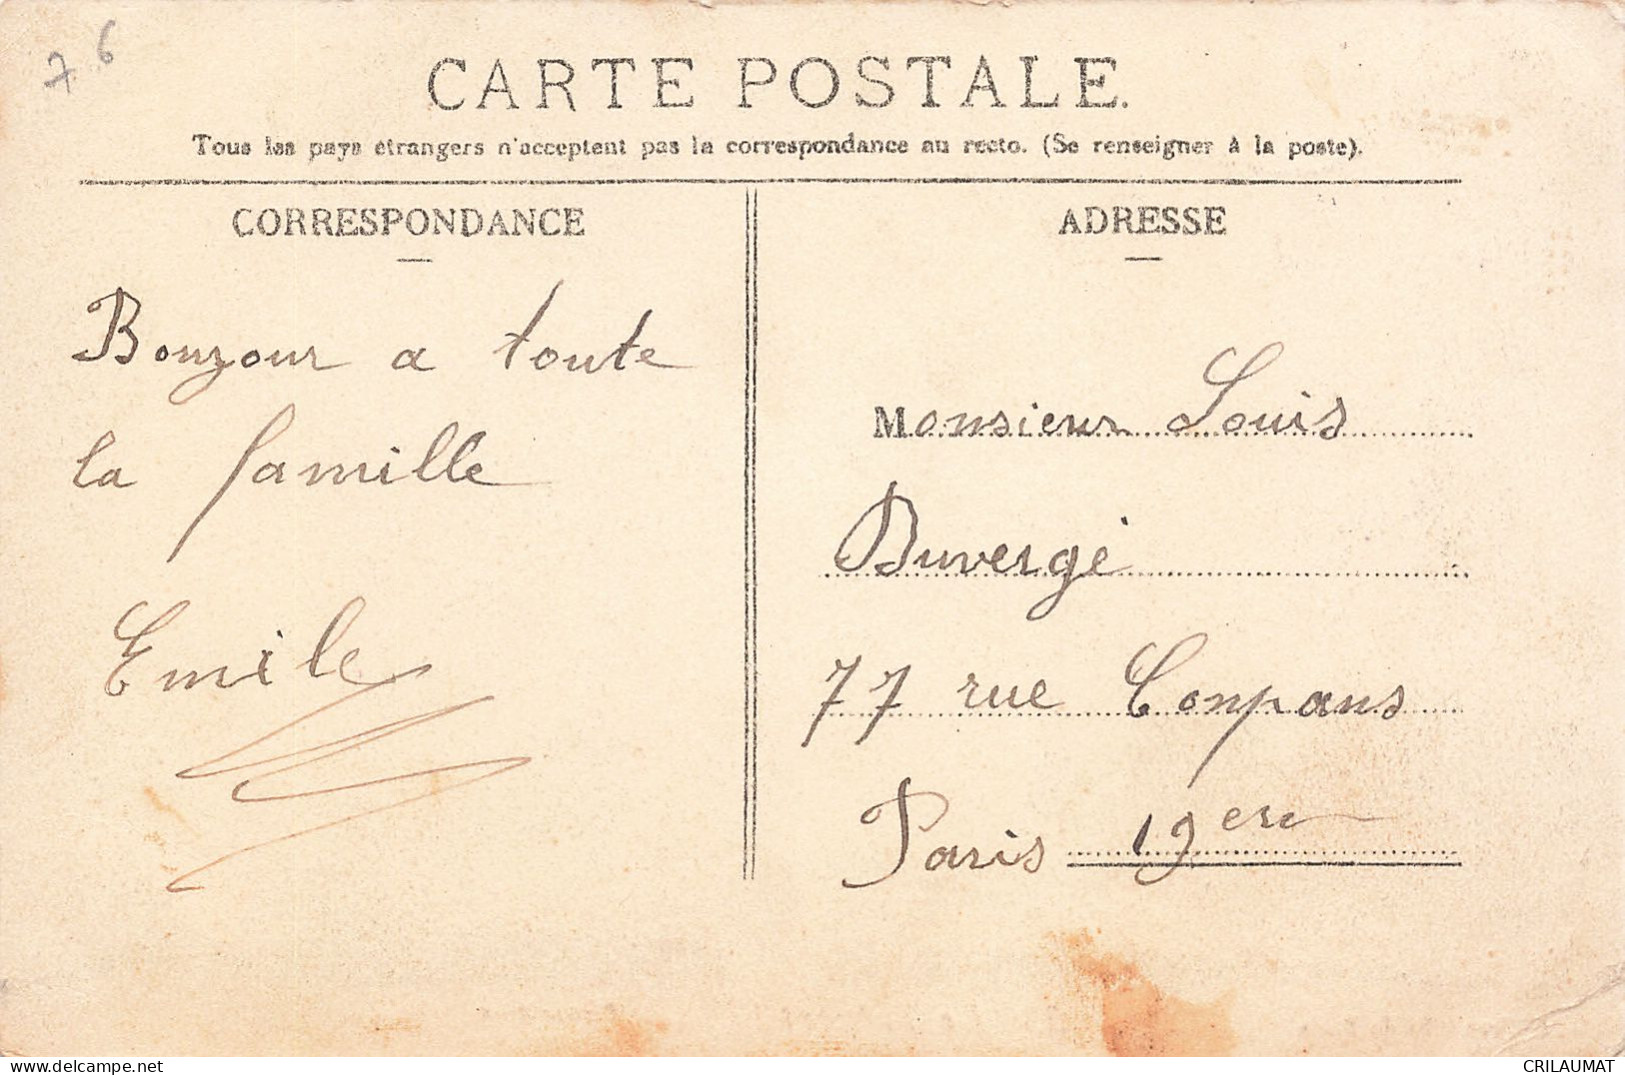 7 6
CARTE POSTALE.
Tous les pays étrangers n'acceptent pas la correspondance au recto. (Se renseigner à la poste).
CORRESPONDANCE
Bonjour a toute
la famille
Emile
ADRESSE
Monsieur Louis
Duvergé
77 rue Conpans
Paris 19eme
CRILAUMAT